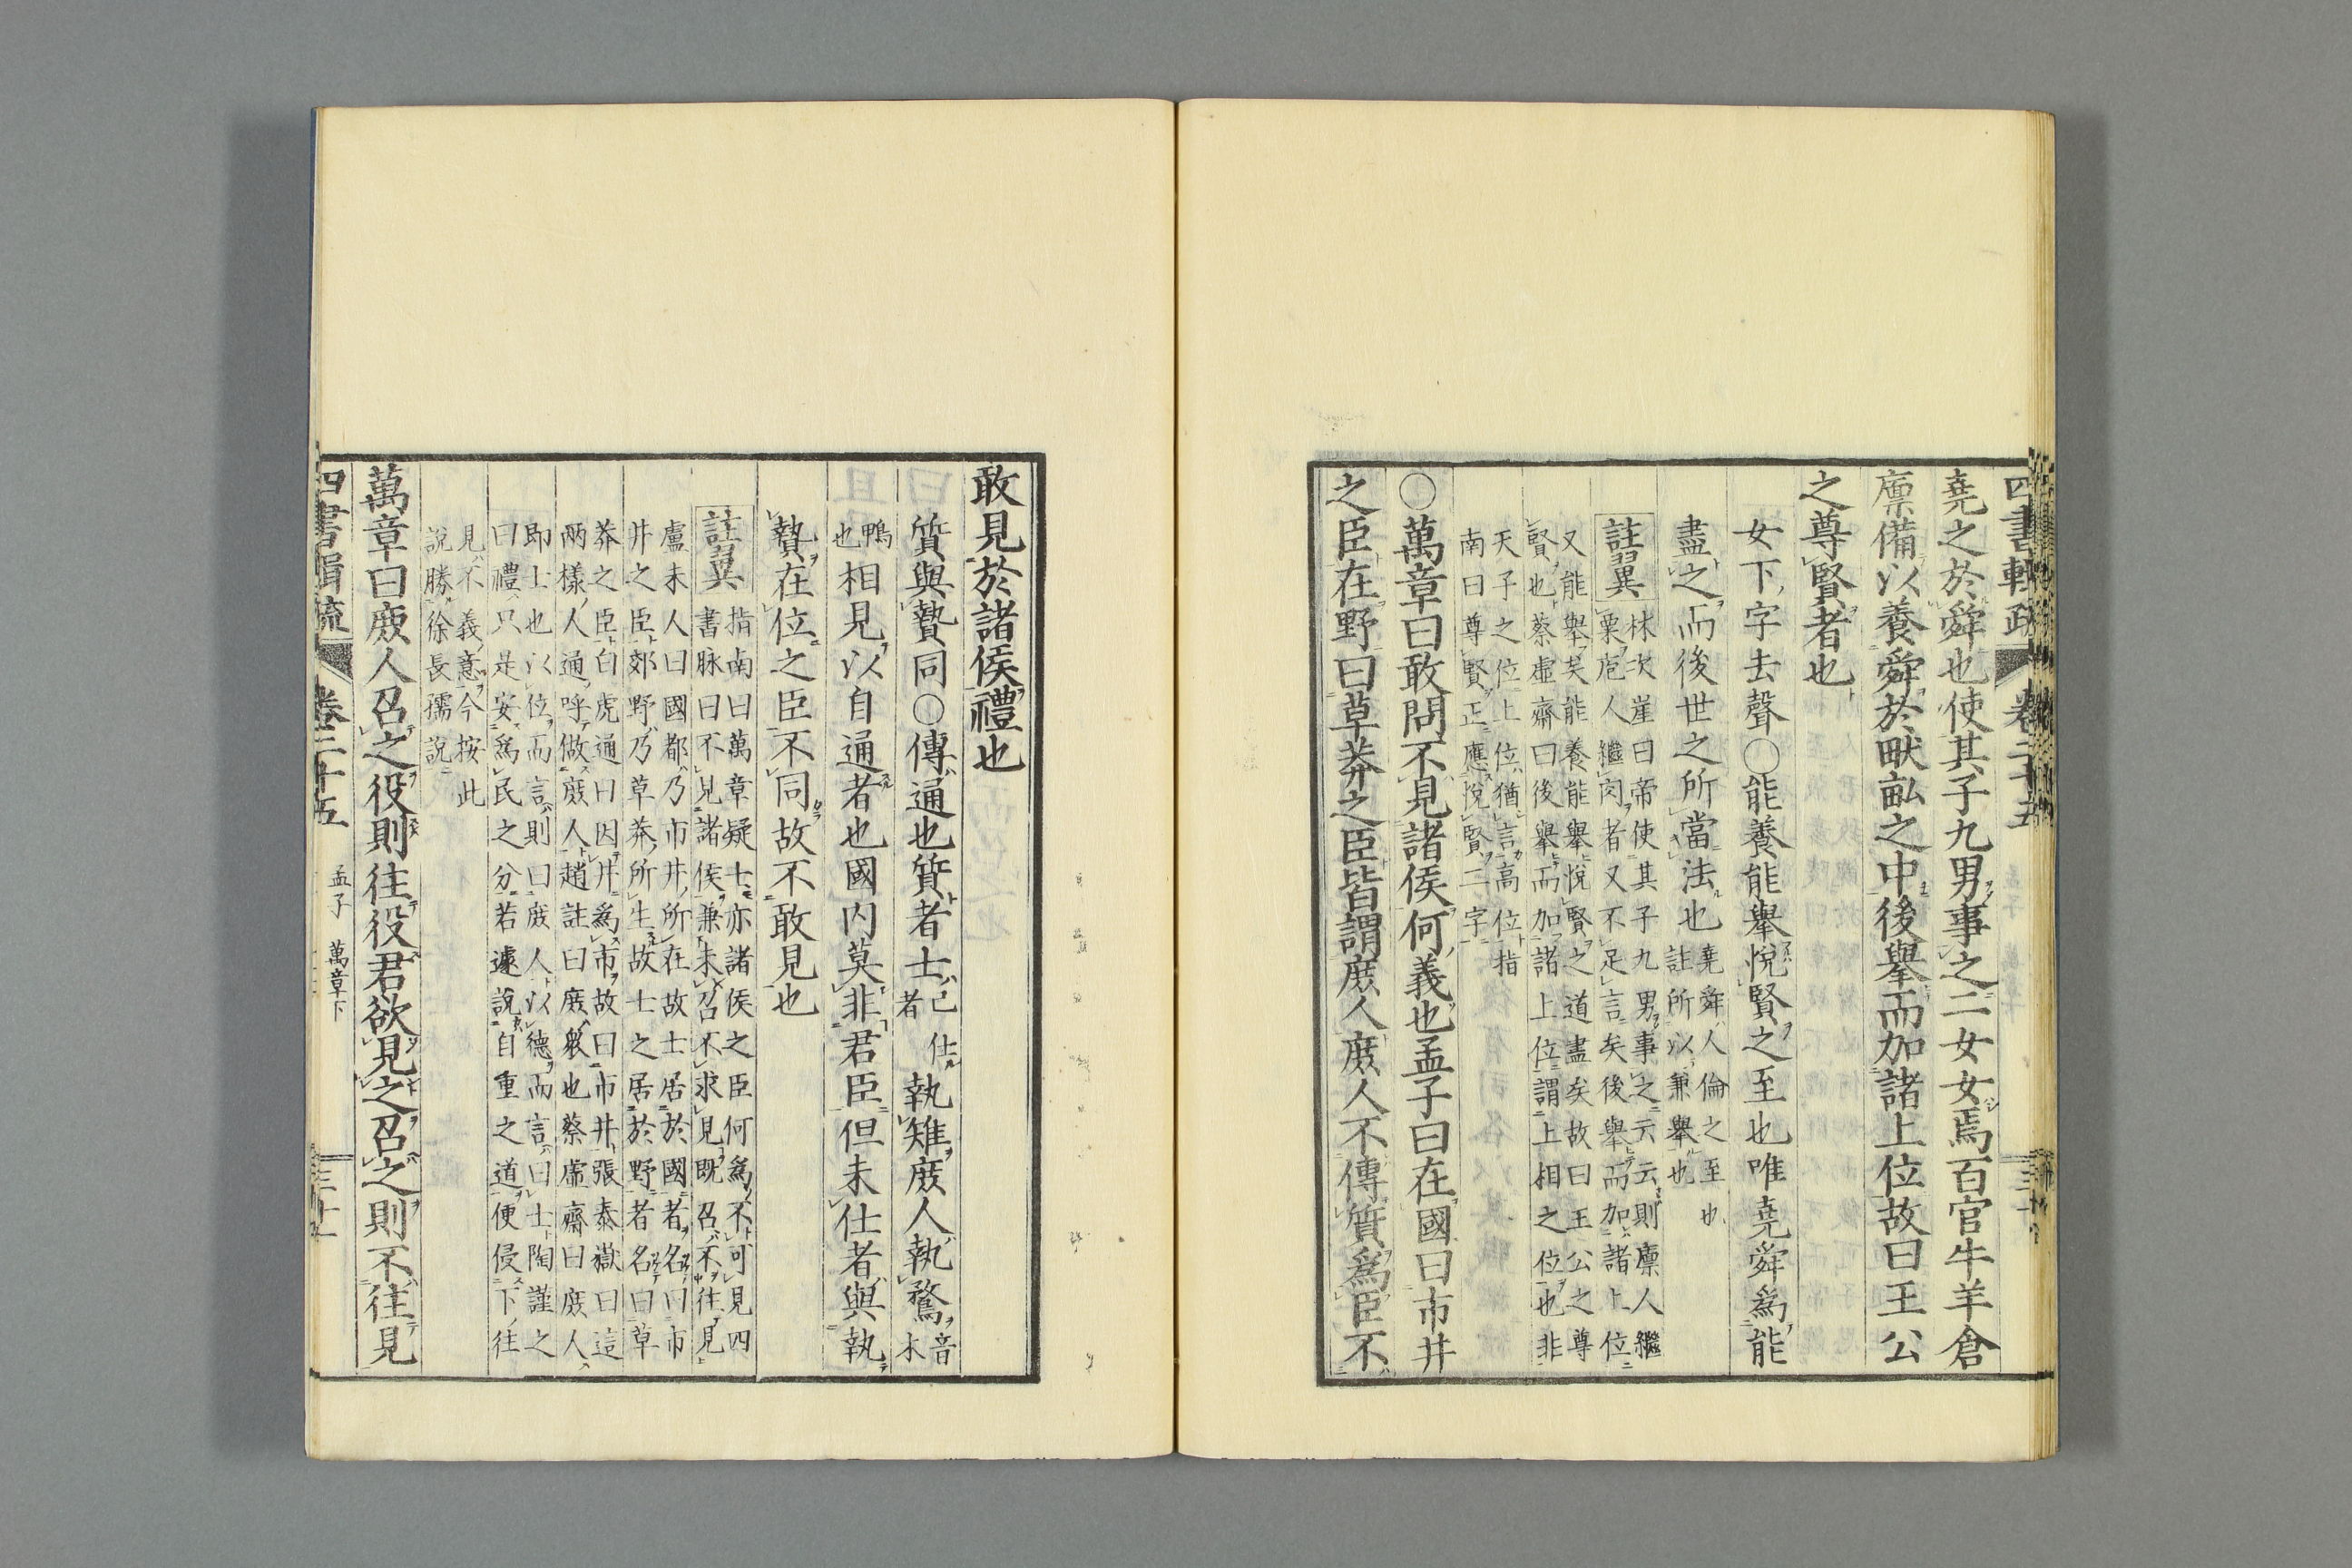 四書輯疏 卷二十五
堯之於舜也使其子九男事之二女女焉百官牛羊倉
廩備以養舜於畎畝之中後擧而加諸上位故曰王公
之尊賢者也
女下字去聲〇能養能擧悅賢之至也唯堯舜爲能
盡之而後世之所當法也
堯舜人倫之至也
註所以兼擧也
註翼
林次崖曰帝使其子九男事之云云則廩人繼
粟庖人繼肉者又不足言矣後擧而加諸上位
又能擧矣能養能擧悅賢之道盡矣故曰王公之尊
賢也蔡虛齋曰後擧而加諸上位謂上相之位也非
天子之位上位猶言高位指
南曰尊賢正應悅賢二字
〇萬章曰敢問不見諸侯何義也孟子曰在國曰市井
之臣在野曰草莽之臣皆謂庻人庻人不傳質爲臣不
敢見於諸侯禮也
質與贄同〇傳通也質者士
已仕
者
執雉庻人執鶩
音木
鴨
也
相見以自通者也國内莫非君臣但未仕者與執
贄在位之臣不同故不敢見也
註翼
指南曰萬章疑士亦諸侯之臣何爲不可見四
書脉曰不見諸侯兼未召不求見既召不往見
盧未人曰國都乃市井所在故士居於國者名曰市
井之臣郊野乃草莽所生故士之居於野者名曰草
莽之臣白虎通曰因井爲市故曰市井張泰嶽曰這
兩樣人通呼做庻人趙註曰庻衆也蔡虛齋曰庻人
即士也以位而言則曰庻人以德而言曰士陶謹之
曰禮只是安爲民之分若遽說自重之道便侵下往
見不義意今按此
說勝徐長孺說
萬章曰庻人召之役則往役君欲見之召之則不往見
四書輯疏 卷二十五 孟子 萬章下